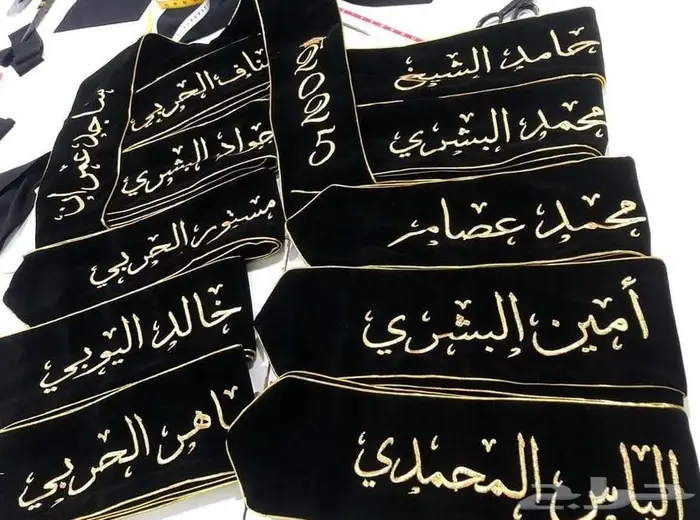 حامد الشيخ
محمد البشري
محمد عصامر
أمين البشري
الياس المحمدي
2025
الحربي
جواد البشري
مستور الحربي
خالد اليوبي
الحربي
ساجد عمران
حراج